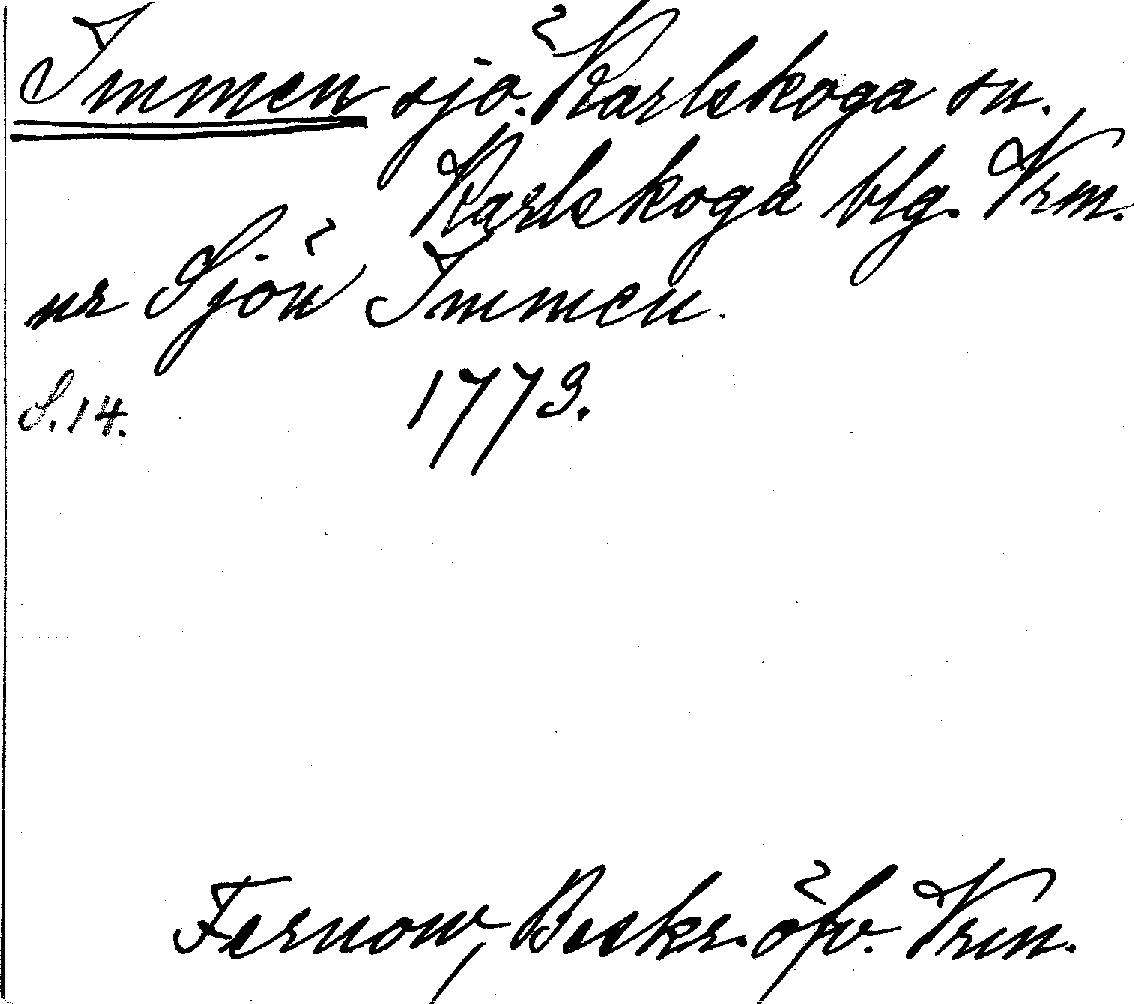 Immen sjö. Karlskoga sn.
Karlskoga blg. Vrm.
nr Sjön Immen.
S. 14. 1773.
Fernow, Beskr. öfv. Vrm.